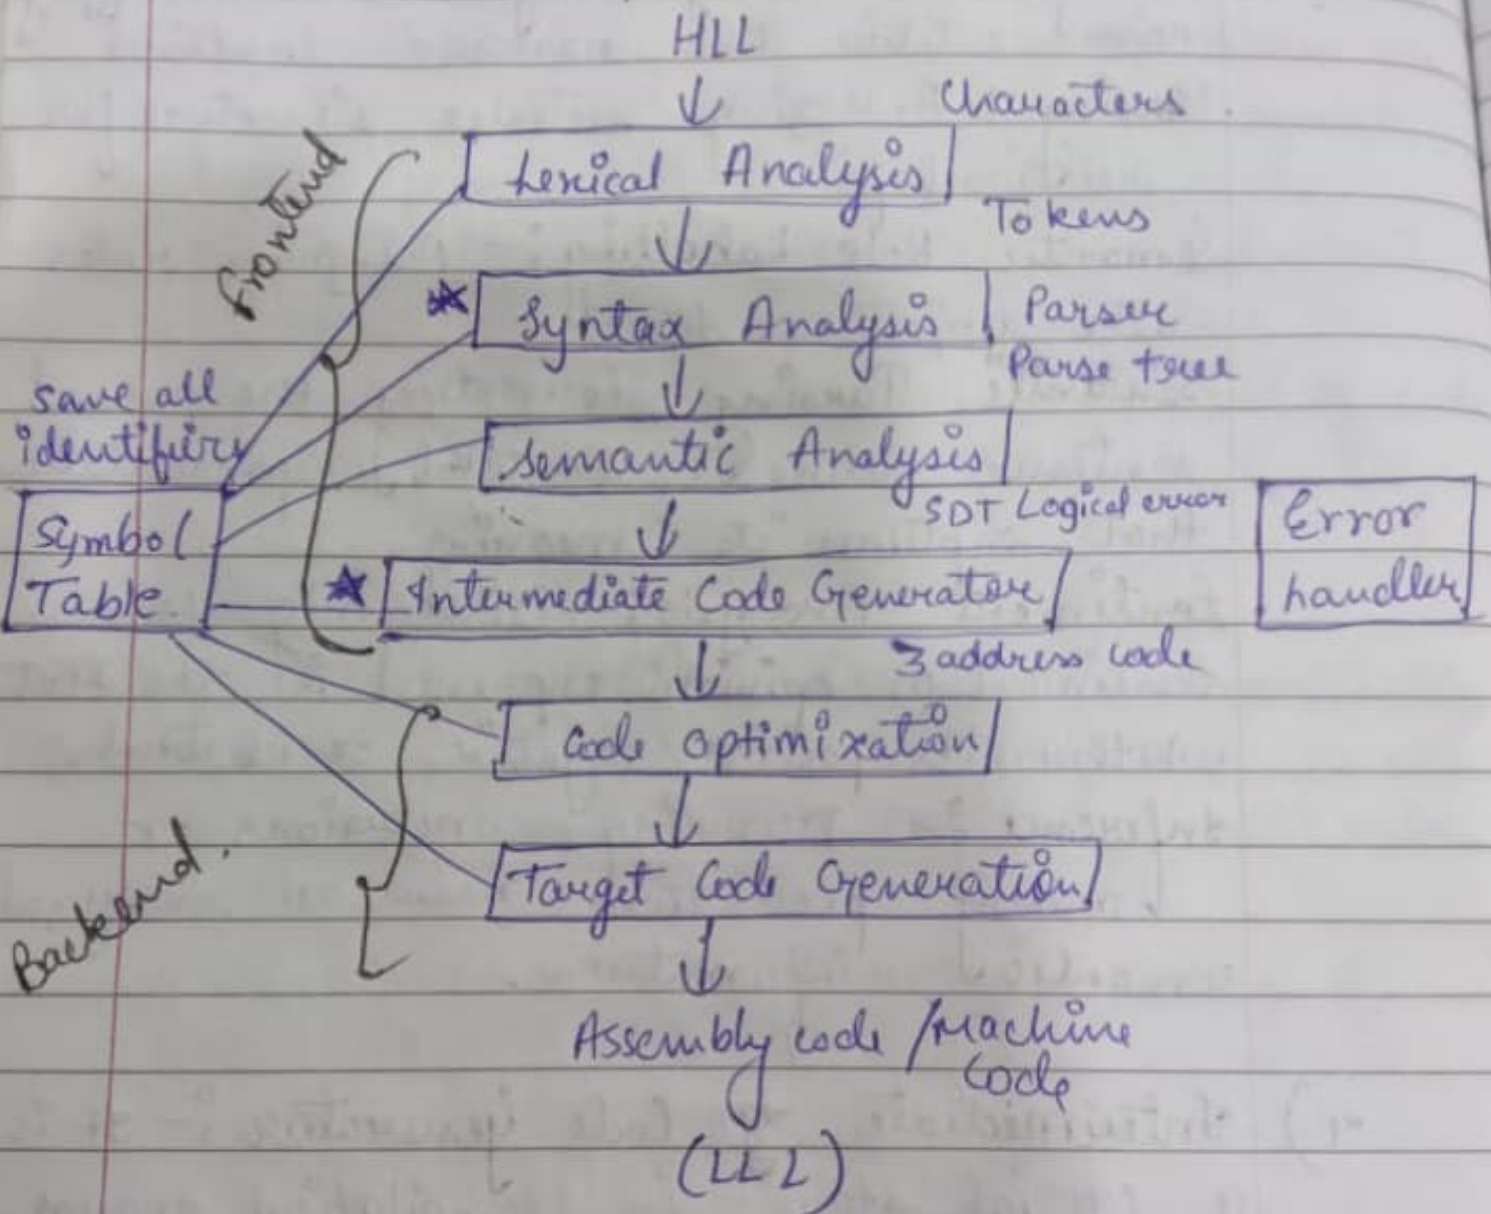 HLL
Characters
Lexical Analysis
Tokens
Frontend
Syntax Analysis
Parser
Parse tree
save all
identifiers
Semantic Analysis
SDT Logical error
Symbol
Table
Error
handler
Intermediate Code Generator
3 address code
Code optimixation
Target Code Generation
Backend.
Assembly code / Machine
Code
(LLL)